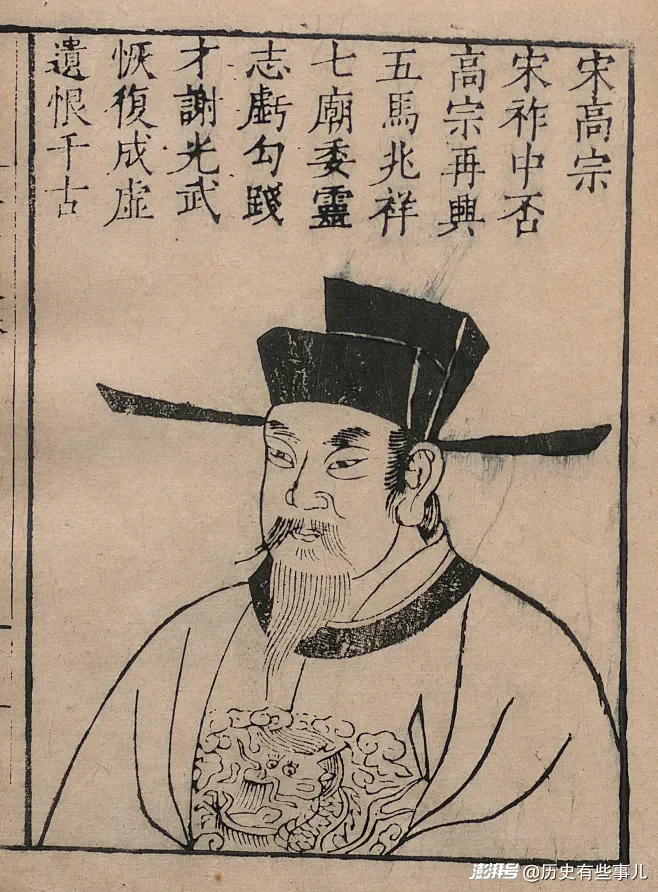 宋高宗
宋祚中否
高宗再興
五馬兆祥
七廟委靈
志虧勾踐
才謝光武
恢復成虛
遺恨千古
澎湃号@历史有些事儿